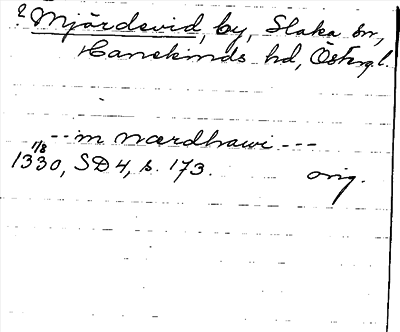 ? Mjärdevid, by, Slaka sn,
Hanekinds hd, Östergl.
-- in nærdhawi ---
1/8
1330, SD 4, s. 173. orig.